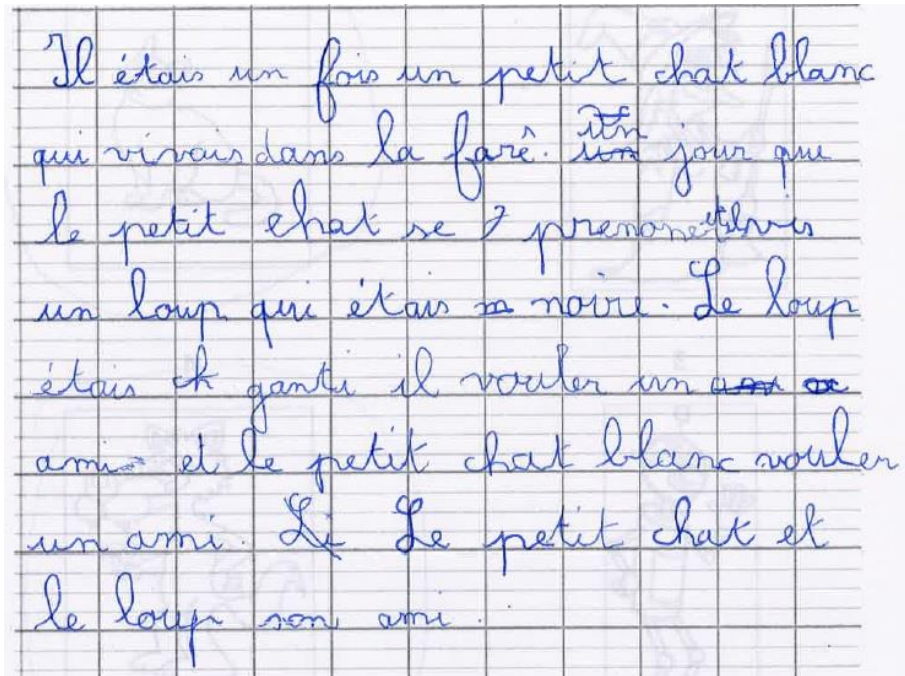 Il étais un fois un petit chat blanc
qui vivais dans la farê. Un jour que
le petit chat se prenonet il vis
un loup qui étais noire. Le loup
étais ganti il vouler un
ami et le petit chat blanc vouler
un ami. Le petit chat et
le loup son ami.